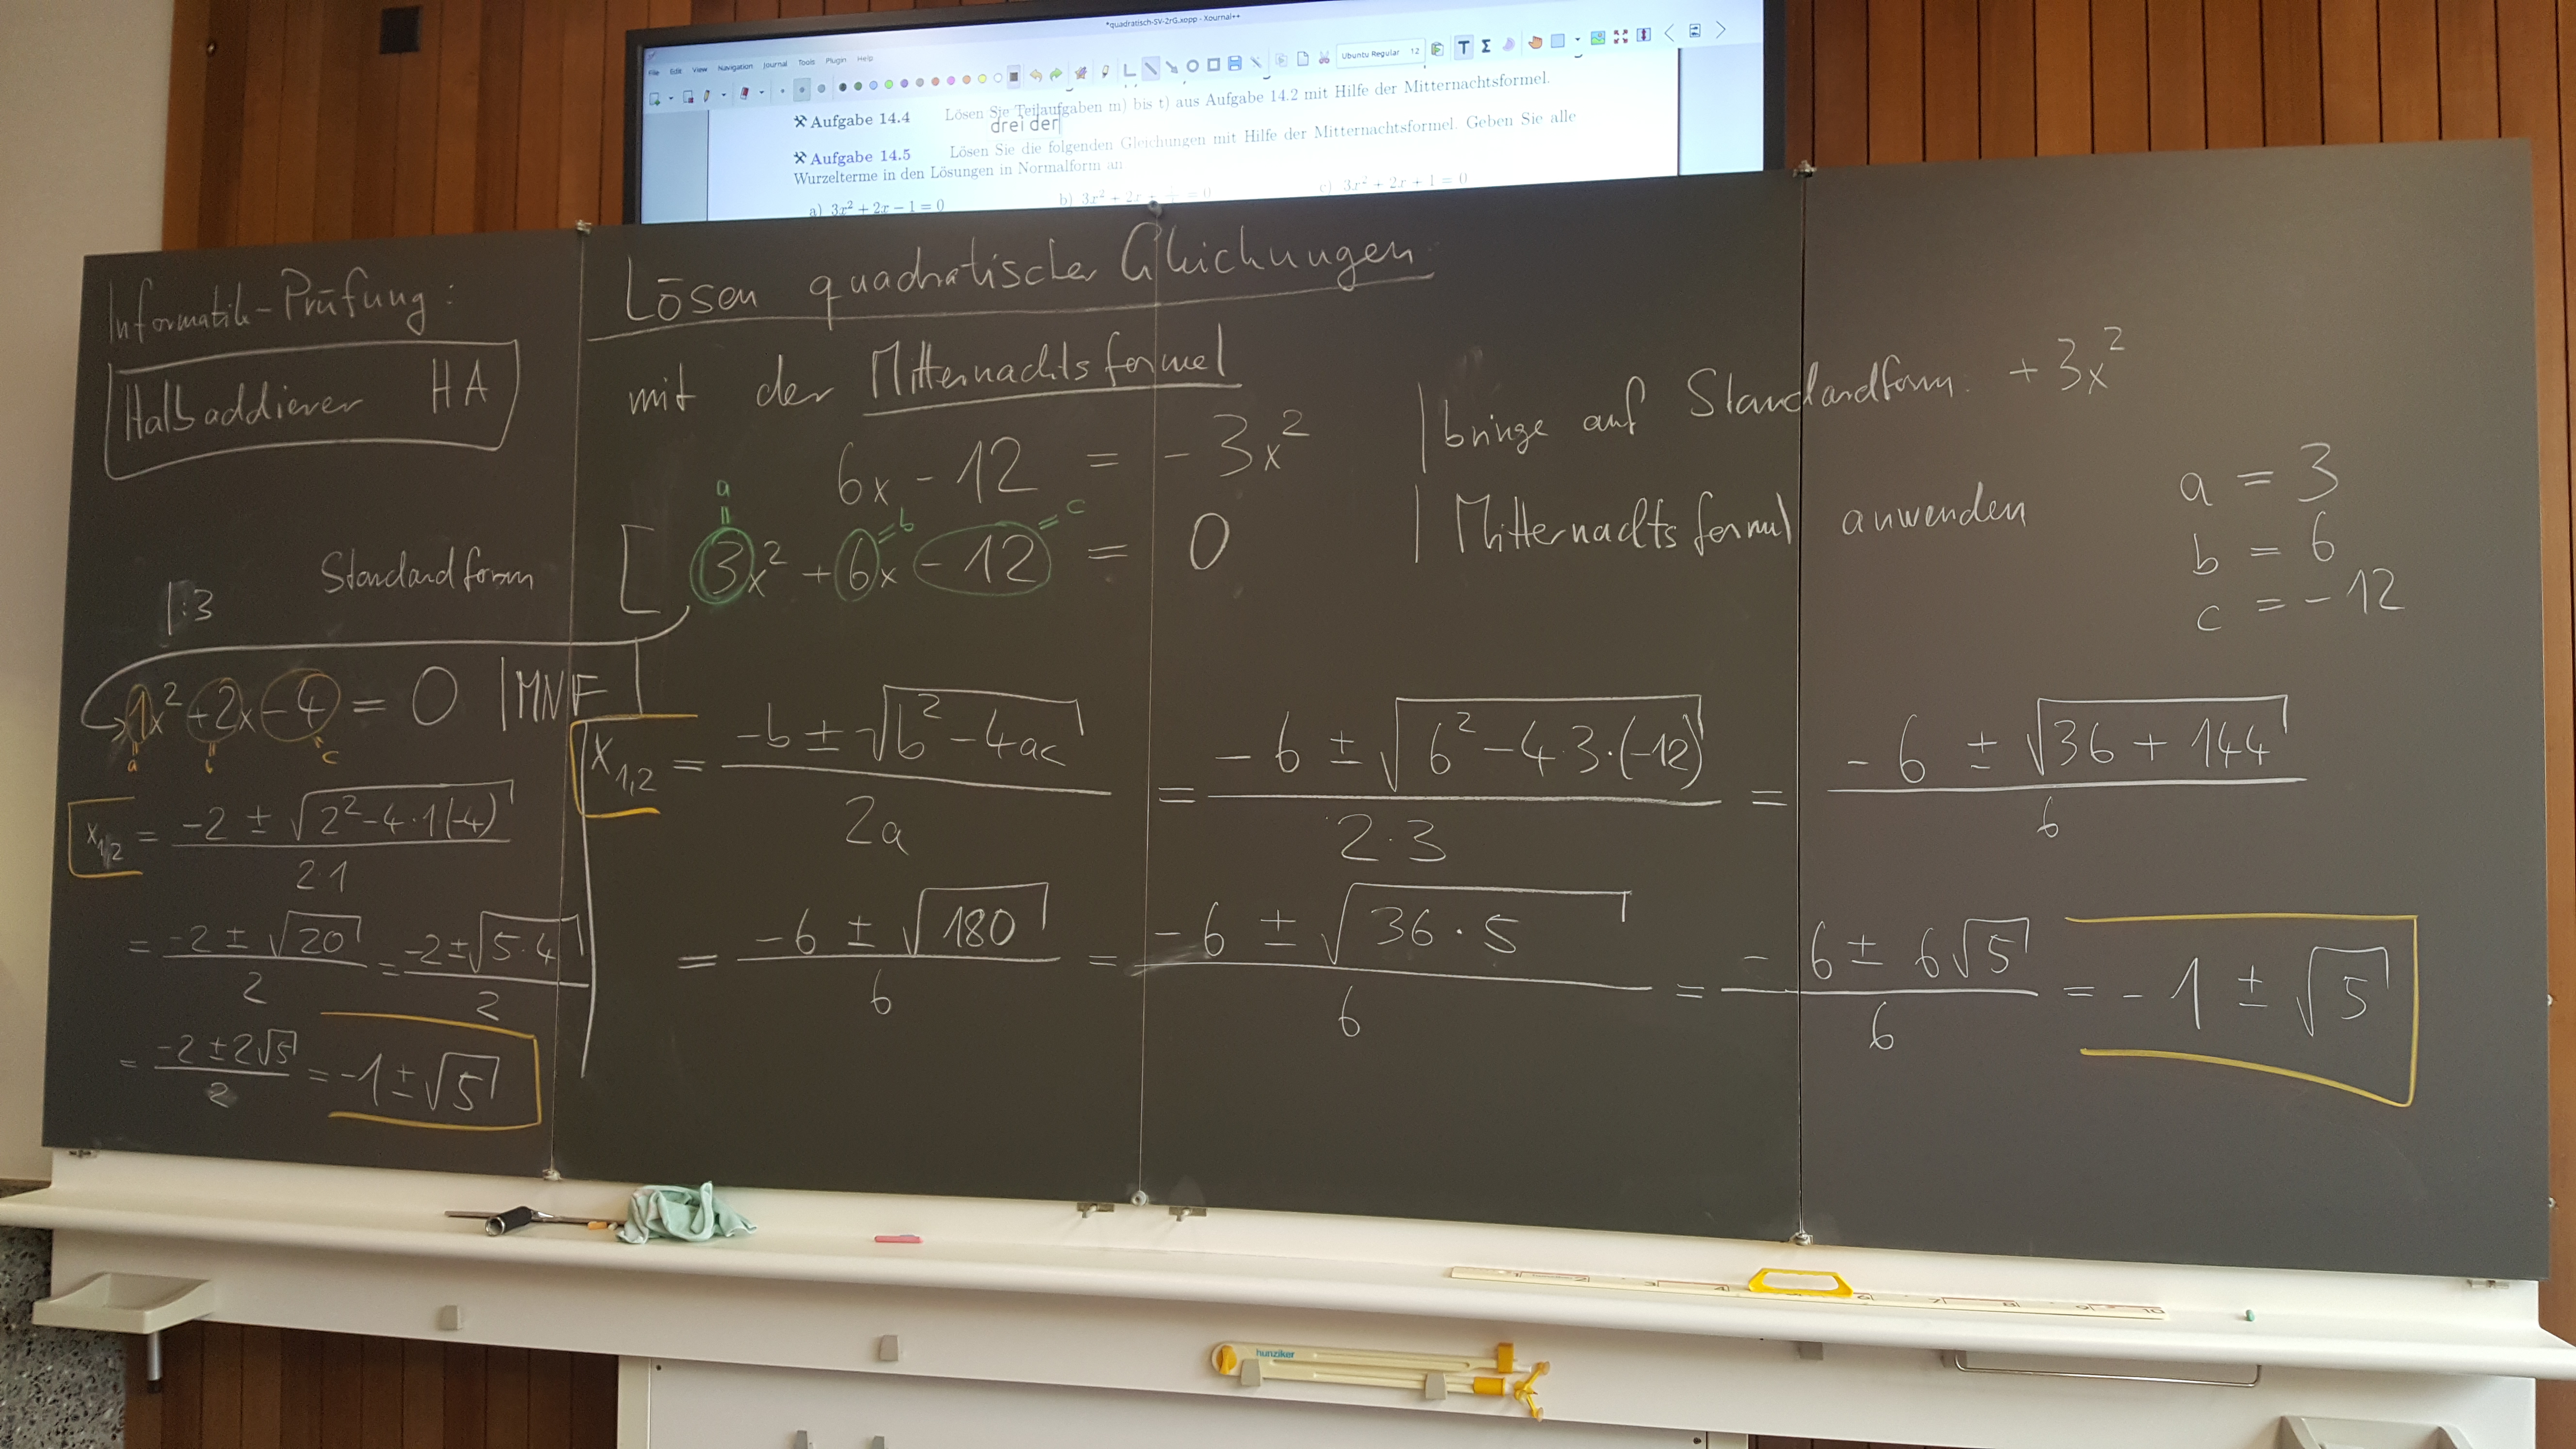 *quadratisch-SV-2rG.xopp - Xournal++
File Edit View Navigation Journal Tools Plugin Help
Ubuntu Regular 12
Aufgabe 14.4 Lösen Sie Teilaufgaben m) bis t) aus Aufgabe 14.2 mit Hilfe der Mitternachtsformel.
drei der
Aufgabe 14.5 Lösen Sie die folgenden Gleichungen mit Hilfe der Mitternachtsformel. Geben Sie alle
Wurzelterme in den Lösungen in Normalform an
a) 3x² + 2x − 1 = 0
c) 3x² + 2x + 1 = 0
Informatik-Prüfung:
Halbaddierer HA
Lösen quadratischer Gleichungen
mit der Mitternachtsformel
6x - 12 = - 3x² | bringe auf Standardform: + 3x²
a = b = c
Standardform [ 3x² + 6x - 12 = 0 | Mitternachtsformel anwenden
a = 3
b = 6
c = -12
|:3
1x² + 2x - 4 = 0 | MNF
a b c
x₁,₂ = (-2 ± √(2² - 4·1·(-4))) / (2·1)
= (-2 ± √20) / 2 = (-2 ± √(5·4)) / 2
= (-2 ± 2√5) / 2 = -1 ± √5
x₁,₂ = (-b ± √(b² - 4ac)) / (2a) = (-6 ± √(6² - 4·3·(-12))) / (2·3) = (-6 ± √(36 + 144)) / 6
= (-6 ± √180) / 6 = (-6 ± √(36·5)) / 6 = (-6 ± 6√5) / 6 = -1 ± √5
hunziker